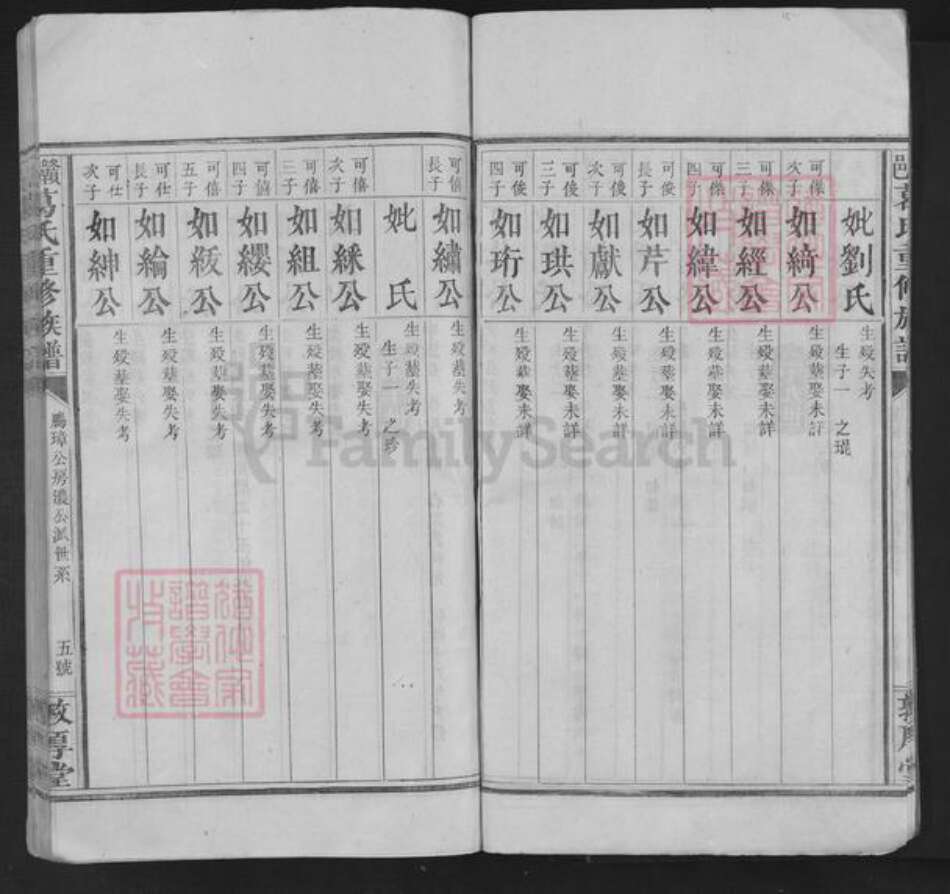 妣劉氏
生殁失考
生子一 之琨
可傑次子
如綺公
生殁葬娶未詳
可傑三子
如經公
生殁葬娶未詳
可傑四子
如緯公
生殁葬娶未詳
可俊長子
如芹公
生殁葬娶未詳
可俊次子
如獻公
生殁葬娶未詳
可俊三子
如珙公
生殁葬娶未詳
可俊四子
如珩公
生殁葬娶未詳
可僖長子
如繡公
生殁葬失考
妣 氏
生殁葬失考
生子一 之珍
可僖次子
如綵公
生殁葬娶失考
可僖三子
如組公
生殁葬娶失考
可僖四子
如纓公
生殁葬娶失考
可僖五子
如絞公
生殁葬娶失考
可仕長子
如綸公
生殁葬娶失考
可仕次子
如紳公
生殁葬娶失考
葛氏重修族譜
五號
敦厚堂
FamilySearch